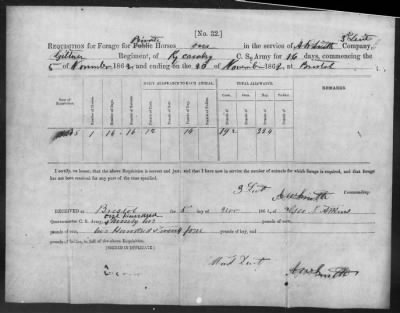 [No. 32.]
Private 3d Lieut
Requisition for Forage for Public Horses one in the service of A W Smith Company,
Giltner Regiment, of Ky cavalry C. S. Army for 16 days, commencing the
5 of November 1862, and ending on the 20 of November 1862, at Bristol
DAILY ALLOWANCE TO EACH ANIMAL. TOTAL ALLOWANCE.
Date of Requisition. Number of Horses. Number of Mules. Number of Days. Pounds of Corn. Fodder. REMARKS.
5 1 16 16 12 14 192 224
I certify, on honor, that the above Requisition is correct and just; and that I have now in service the number of animals for which forage is required, and that forage
has not been received for any part of the time specified.
3 Lieut A W Smith Commanding.
RECEIVED AT Bristol the 5 day of Nov 186 of Geo
one hundred
Quartermaster C. S. Army, Ninety two
pounds of corn, two Hundred & twenty four pounds of hay, and
pounds of fodder, in full of the above Requisition.
(SIGNED IN DUPLICATE)
Lieut A W Smith